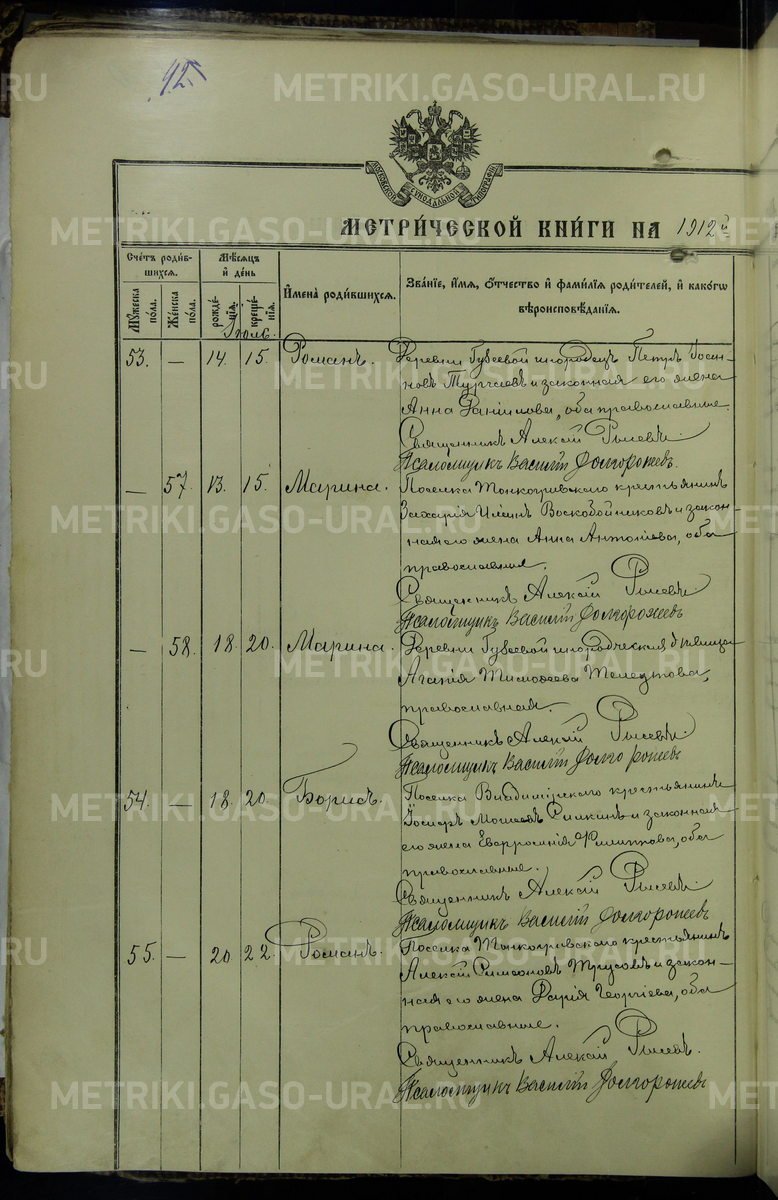 425
МОСКОВСКОЙ СѴНОДАЛЬНОЙ ТИПОГРАФІИ
МЕТРИ́ЧЕСКОЙ КНИ́ГИ НА 1912 й
Сче́тъ роди́в-
шихся.
Мѣ́сяцъ
и҆ де́нь
И҆мена̀ роди́вшихся.
Зва́нїе, и҆́мя, ѻ҆́тчество и҆ фами́лїя роди́телей, и҆ како́гѡ
вѣроисповѣ́данїя.
Мꙋ́жеска по́ла.
Же́нска по́ла.
рожде́нїя.
креще́нїя.
Іюль.
53. — 14. 15. Романъ. Деревни Губеевой инородецъ Петръ Оси-
новъ Тургаевъ и законная его жена
Анна Данилова, оба православные.
Священникъ Алексій Рысевъ
Псаломщикъ Василій Долгорожевъ.
— 57. 13. 15. Марина. Поселка Тонкогривскаго крестьянинъ
Захарія Воскобойниковъ и закон-
ная его жена Анна Антоніева, оба
православные.
Священникъ Алексій Рысевъ
Псаломщикъ Василій Долгорожевъ
— 58. 18. 20. Марина. Деревни Губеевой инородческая дѣвица
Агапія Тимоѳеева
православная.
Священникъ Алексій Рысевъ
Псаломщикъ Василій Долгорожевъ
54. — 18. 20. Борисъ. Поселка Владимірскаго крестьянинъ
Моисеевъ и законная
его жена Евфросинія Филиппова, оба
православные.
Священникъ Алексій Рысевъ
Псаломщикъ Василій Долгорожевъ
55. — 20. 22. Романъ. Поселка Тонкогривскаго крестьянинъ
Алексій Симеоновъ Трусовъ и закон-
ная его жена Дарія Георгіева, оба
православные.
Священникъ Алексій Рысевъ.
Псаломщикъ Василій Долгорожевъ
METRIKI.GASO-URAL.RU